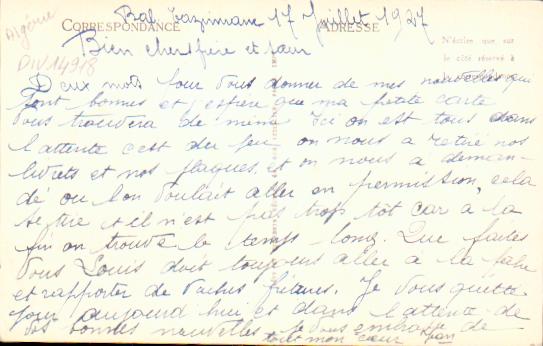 Algérie
DIV14918
Bab Tazimam 17 Juillet 1927
CORRESPONDANCE
ADRESSE
N'écrire que sur
le côté réservé à
Bien chers frère et sœur
Deux mots pour vous donner de mes nouvelles qui
sont bonnes et j'espère que ma petite carte
vous trouvera de même Ici on est tous dans
l'attente c'est du feu on nous a retiré nos
livrets et nos plaques, et on nous a deman-
dé ou l'on voulait aller en permission, cela
se tire et il n'est pas trop tôt car a la
fin on trouve le temps long. Que faites
vous Louis doit toujours aller a la
et rapporter de fritures. Je vous quitte
pour aujourd hui et dans l'attente de
vos bonnes nouvelles je vous embrasse de
tout mon cœur Jean